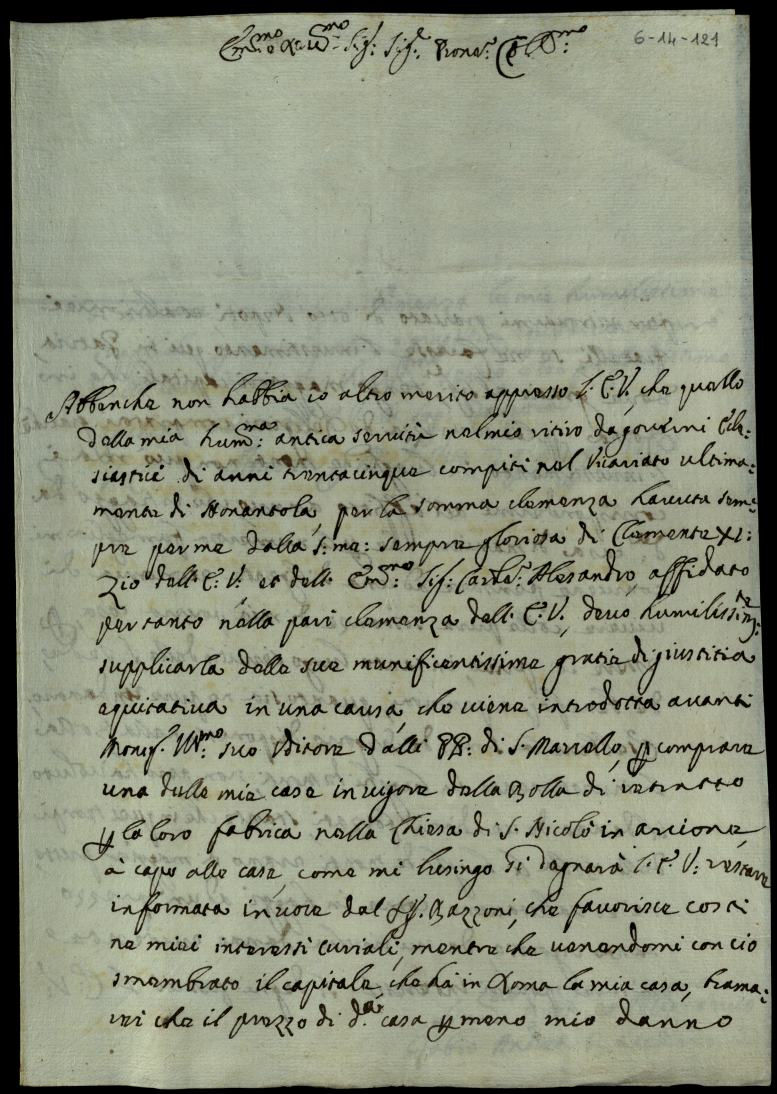 Em.mo e Rev.mo Sig: Sig.e Prone. Col.mo
6-14-121
Abbenche non habbia io altro merito appresso l'E.V., che quello
della mia hum.ma: antica servitù nel mio ritiro da governi Ecle:
siastici di anni trentacinque compiti nel Vicariato ultima:
mente di Nonantola, per la somma clemenza havuta sem:
pre per me dalla S: me: sempre gloriosa di Clemente XI:
Zio dell'E:V:, et dell'Em.mo Sig: Card.e Alesandro, affidato
per tanto nella pari clemenza dell'E.V., devo humilissim.te
supplicarla delle sue munificentissime gratie di giustitia
equitativa in una causa, che viene introdotta avanti
Mons.r Ill.mo suo Uditore dalli PP: di S. Marcello, p comprare
una delle mie case in vigore della Bolla di retratto
p la loro fabrica nella Chiesa di S. Nicolò in arcione,
à capo alle case, come mi lusingo si degnarà l'E.V: restare
informata in voce dal Bazzoni, che favorisce costi
ne miei interessi curiali, mentre che venendomi con ciò
smembrato il capitale, che hà in Roma la mia casa, brama:
rei che il prezzo di d.a casa p meno mio danno